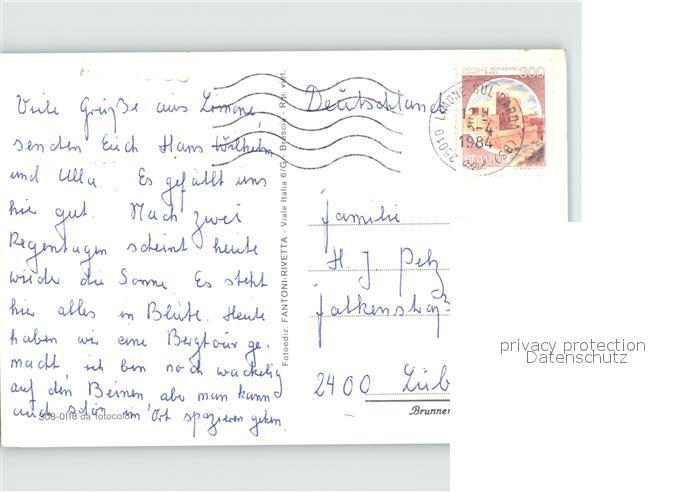 Viele Grüße aus Limone,
senden Euch Hans Wilhelm
und Ulla. Es gefällt uns
hier gut. Nach zwei
Regentagen scheint heute
wieder die Sonne. Es steht
hier alles in Blüte. Heute
haben wir eine Bergtour ge-
macht, ich bin noch wackelig
auf den Beinen, aber man kann
auch schön im Ort spazieren gehen.
308-0118 da fotocolor
Fotoediz. FANTONI-RIVETTA - Viale Italia 6/G - Brescia - Rip. viet.
Deutschland
CASTELLO NORMANNO
BARI
300
ITALIA
25010 LIMONE SUL GARDA (BS)
1984
Familie
H J Petz
Falkenstraß
2400 Lüb
Brunner
privacy protection
Datenschutz